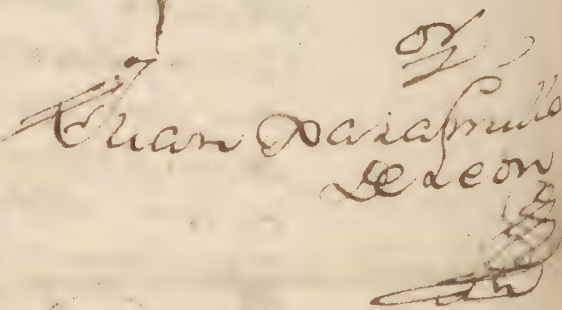 Juan Xaramillo
De Leon